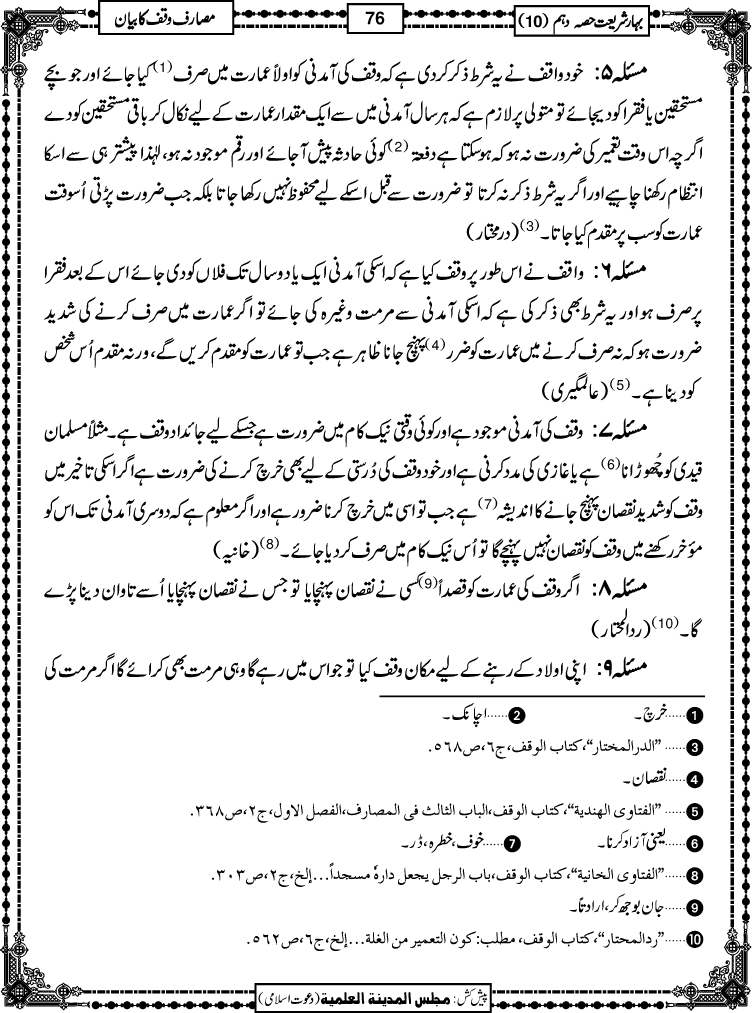 بہار شریعت حصہ دہم (10)
76
مصارف وقف کا بیان
مسئلہ ۵: خود واقف نے یہ شرط ذکر کردی ہے کہ وقف کی آمدنی کو اولاً عمارت میں صرف (1) کیا جائے اور جو بچے
مستحقین یا فقرا کو دیجائے تو متولی پر لازم ہے کہ ہر سال آمدنی میں سے ایک مقدار عمارت کے لیے نکال کر باقی مستحقین کو دے
اگرچہ اس وقت تعمیر کی ضرورت نہ ہو کہ ہوسکتا ہے دفعۃً (2) کوئی حادثہ پیش آجائے اور رقم موجود نہ ہو، لہٰذا پیشتر ہی سے اسکا
انتظام رکھنا چاہیے اور اگر یہ شرط ذکر نہ کرتا تو ضرورت سے قبل اسکے لیے محفوظ نہیں رکھا جاتا بلکہ جب ضرورت پڑتی اُسوقت
عمارت کو سب پر مقدم کیا جاتا۔ (3) (درمختار)
مسئلہ ۶: واقف نے اس طور پر وقف کیا ہے کہ اسکی آمدنی ایک یا دو سال تک فلاں کو دی جائے اس کے بعد فقرا
پر صرف ہو اور یہ شرط بھی ذکر کی ہے کہ اسکی آمدنی سے مرمت وغیرہ کی جائے تو اگر عمارت میں صرف کرنے کی شدید
ضرورت ہو کہ نہ صرف کرنے میں عمارت کو ضرر (4) پہنچ جانا ظاہر ہے جب تو عمارت کو مقدم کریں گے، ورنہ مقدم اُس شخص
کو دینا ہے۔ (5) (عالمگیری)
مسئلہ ۷: وقف کی آمدنی موجود ہے اور کوئی وقتی نیک کام میں ضرورت ہے جسکے لیے جائداد وقف ہے۔ مثلاً مسلمان
قیدی کو چھوڑانا (6) ہے یا غازی کی مدد کرنی ہے اور خود وقف کی دُرستی کے لیے بھی خرچ کرنے کی ضرورت ہے اگر اسکی تاخیر میں
وقف کو شدید نقصان پہنچ جانے کا اندیشہ (7) ہے جب تو اسی میں خرچ کرنا ضرور ہے اور اگر معلوم ہے کہ دوسری آمدنی تک اس کو
مؤخر رکھنے میں وقف کو نقصان نہیں پہنچے گا تو اُس نیک کام میں صرف کردیا جائے۔ (8) (خانیہ)
مسئلہ ۸: اگر وقف کی عمارت کو قصداً (9) کسی نے نقصان پہنچایا تو جس نے نقصان پہنچایا اُسے تاوان دینا پڑے
گا۔ (10) (ردالمحتار)
مسئلہ ۹: اپنی اولاد کے رہنے کے لیے مکان وقف کیا تو جو اس میں رہے گا وہی مرمت بھی کرائے گا اگر مرمت کی
1 ......خرچ۔ 2 ......اچانک۔
3 ...... ”الدرالمختار“، کتاب الوقف، ج٦، ص٥٦٨.
4 ......نقصان۔
5 ...... ”الفتاوی الھندیة“، کتاب الوقف، الباب الثالث فی المصارف، الفصل الاول، ج٢، ص٣٦٨.
6 ......یعنی آزاد کرنا۔ 7 ......خوف، خطرہ، ڈر۔
8 ...... ”الفتاوی الخانیة“، کتاب الوقف، باب الرجل یجعل دارہٗ مسجداً...إلخ، ج٢، ص٣٠٣.
9 ......جان بوجھ کر، ارادتاً۔
10 ...... ”ردالمحتار“، کتاب الوقف، مطلب: کون التعمیر من الغلة...إلخ، ج٦، ص٥٦٢.
پیش کش: مجلس المدینة العلمیة (دعوت اسلامی)